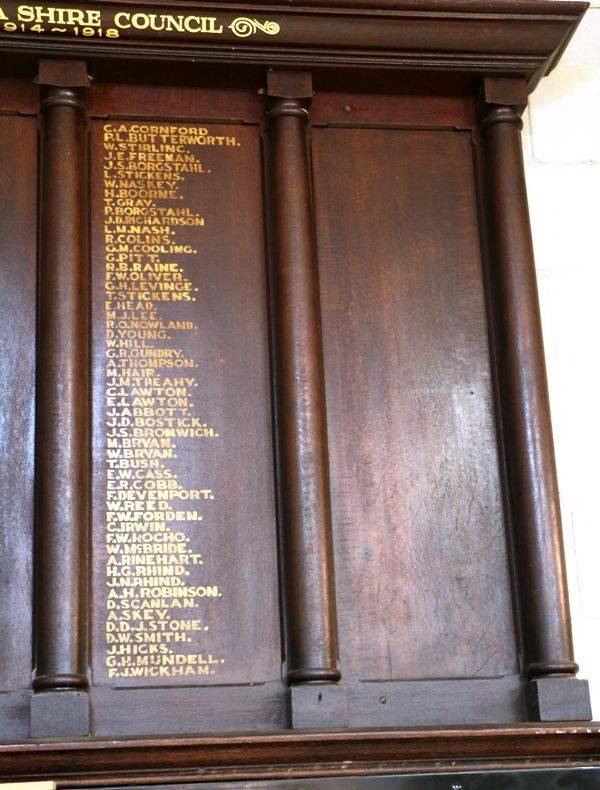 A SHIRE COUNCIL
1914~1918
C.A.CORNFORD
P.L.BUTTERWORTH.
W.STIRLING.
J.E.FREEMAN.
J.S.BORGSTAHL.
L.STICKENS.
W.NASKEY.
H.BOORNE.
T.GRAY.
P.BORGSTAHL.
J.D.RICHARDSON
L.M.NASH.
R.COLINS.
G.M.COOLING.
G.PITT.
R.B.RAINE.
F.W.OLIVER.
G.H.LEVINGE.
T.STICKENS.
E.HEAD.
M.J.LEE.
R.O.NOWLAND.
D.YOUNG.
W.HILL.
G.R.GUNDRY.
A.THOMPSON.
M.HAIR.
J.M.TREAHY.
C.LAWTON.
E.LAWTON.
J.ABBOTT.
J.D.BOSTICK.
J.S.BROMWICH.
M.BRYAN.
W.BRYAN.
T.BUSH.
E.W.CASS.
E.R.COBB.
F.DEVENPORT.
W.REED.
F.W.FORDEN.
C.IRWIN.
F.W.KOCHO.
W.McBRIDE.
A.RINEHART.
H.G.RHIND.
J.N.RHIND.
A.H.ROBINSON.
D.SCANLAN.
A.SKEY.
D.D.J.STONE.
D.W.SMITH.
J.HICKS.
G.H.MUNDELL.
F.J.WICKHAM.